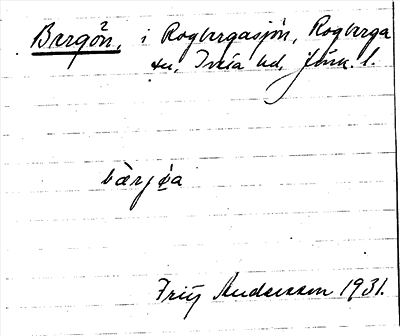 Bergön, i Rogbergasjön, Rogberga
sn, Tveta hd, Jönk. l.
bærjöa
Fritz Andersson 1931.